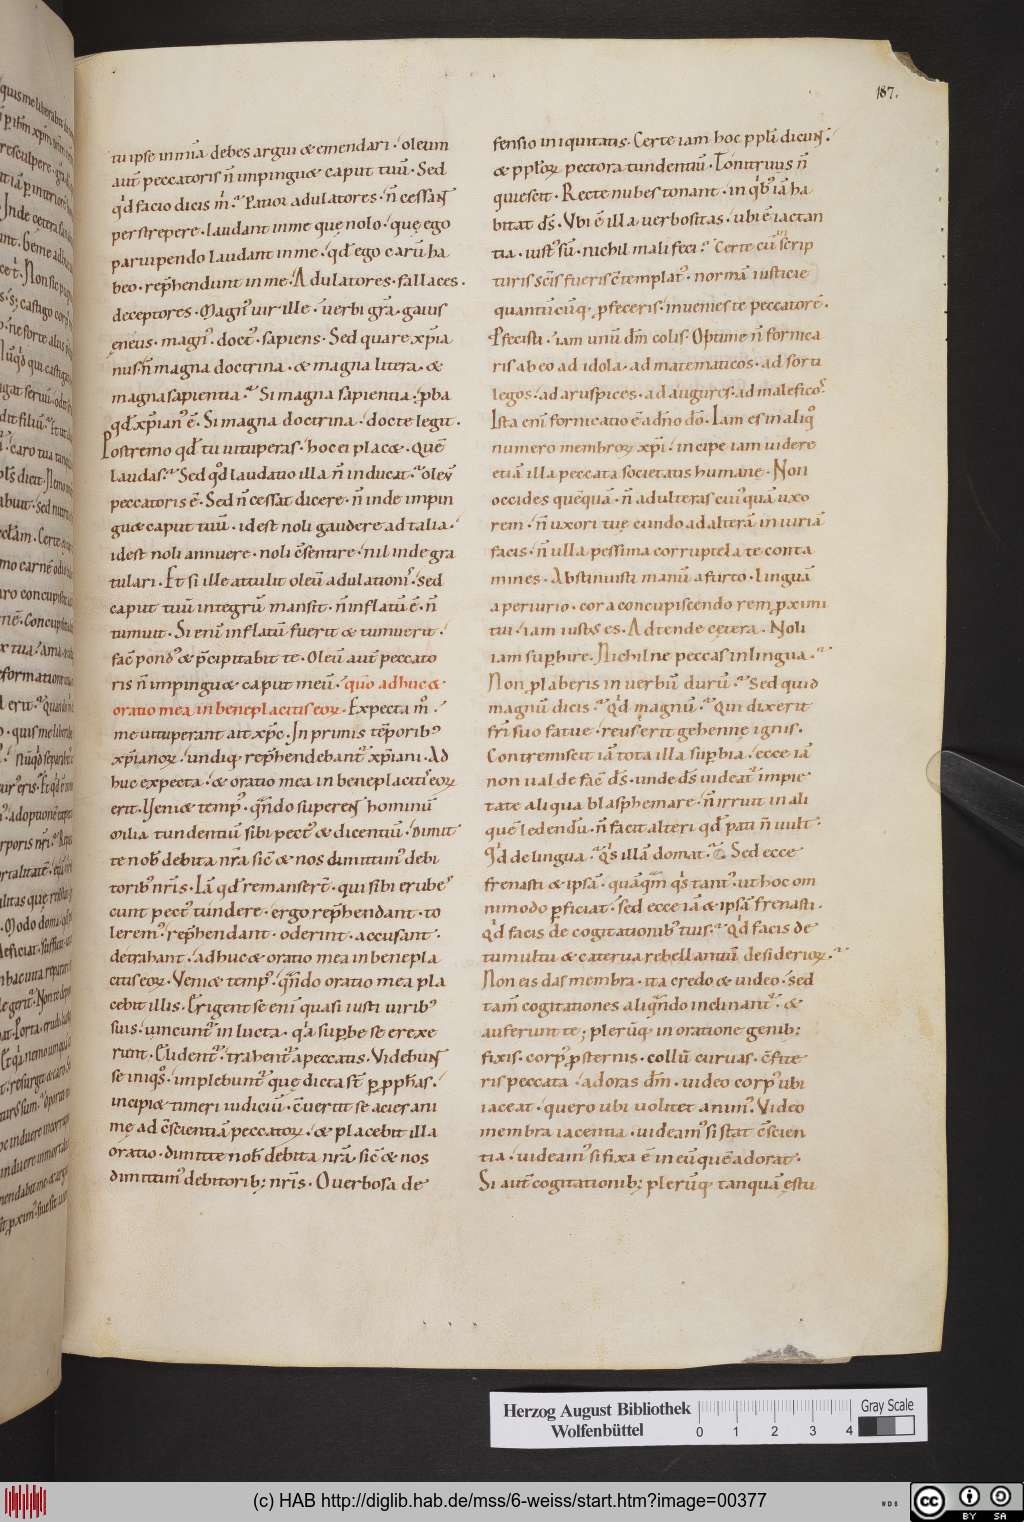 187.
tu ipse in mīa debes argui & emendari· oleum
aut̄ peccatoris n̄ impinguæ caput tuū· Sed
qd facio dicis m̄· Patior adulatores· n̄ cessant
perstrepere· laudant in me quę nolo· quę ego
paruipendo laudant in me· qd̄ ego carū ha
beo· rep̄hendunt in me· Adulatores· fallaces·
deceptores· Magn' uir ille· uerbi grā· gaius
ęneus· magn'· doct'· sapiens· Sed quare xp̄ia
nus· n̄ magna doctrina· & magna litera· &
magna sapientia· Si magna sapientia· ꝓba
qd̄ xp̄ian' ē· Si magna doctrina· docte legit·
Postremo qd̄ tu uituperas· hoc ei placæ· Quē
laudas· Sed qd̄ laudatio illa n̄ inducat· oleū
peccatoris ē· Sed n̄ cessāt dicere· n̄ inde impin
guæ caput tuū· idest noli gaudere ad talia·
idest noli annuere· noli c̄sentire· nil inde gra
tulari· Et si ille attulit oleū adulationis· sed
caput tuū integrū mansit· n̄ inflatū ē· n̄
tumuit· Si enī inflatū fuerit & tumuerit·
fac̄ pond' & p̄cipitabit te· Oleū aut̄ peccato
ris n̄ impinguæ caput meū· qm̄ adhuc &
oratio mea in beneplacitis eoꝝ· Expecta m̊
me uituperant ait xp̄c· In primis tēporib'
xp̄ianoꝝ· undiq· rep̄hendebant' xp̄iani· Ad
huc expecta· & oratio mea in beneplacitis eoꝝ
erit· Veniæ temp'· qn̄do superent hominū
milia tundentiū sibi pect' & dicentiū· Dimit
te nob̄ debita nr̄a sic̄ & nos dimittim' debi
torib' nr̄is· Iā qd̄ remanser̄t· qui sibi erube
cunt pect' tundere· ergo rep̄hendant· to
lerem'· rep̄hendant· oderint· accusant·
detrahant· adhuc & oratio mea in benepla
citis eoꝝ· Veniæ temp'· qn̄do oratio mea pla
cebit illis· Erigent se enī quasi iusti uirib'
suis· uincunt' in lucta· qa sup̄be se erexe
runt· Eudent'· trahent' a peccatis· Videbunt
se iniqos· implebunt' quę dicta st̄ ꝑ ꝓph̄as·
incipiæ timeri iudiciū· c̄uertit se acies ani
mę ad c̄scientiā peccatoꝝ· & placebit illa
oratio· dimitte nob̄ debita nr̄a sic̄ & nos
dimittim' debitorib; nr̄is· O uerbosa de
fensio iniquitatis· Certe iam hoc ppl̄i dicunt·
& pploꝝ pectora tundentiū· Tonitruus n̄
quiescit· Recte nubes tonant· in qb' iā ha
bitat ds̄· Vbi ē illa uerbositas· ubi ē iactan
tia· iust' sū· nichil mali feci· Certe cū scrip
turis scīs fueris c̄templat'· normā iusticie
quantūcūq· ꝓfeceris· inuenies te peccatorē·
Pfecisti· iam unū dm̄ colis· Optime n̄ fornica
ris ab eo ad idola· ad matematicos· ad sorti
legos· ad aruspices· ad augures· ad maleficos·
Ista enī fornicatio ē a dn̄o dō· Iam es in aliq
numero membroꝝ xp̄i· incipe iam uidere
etiā illa peccata societatis humanę· Non
occides quēquā· n̄ adulteras cui'quā uxo
rem· n̄ uxori tuę eundo ad alterā iniuriā
facis· n̄ ulla pessima corruptela te conta
mines· Abstinuisti manū a furto· linguā
a periurio· cor a concupiscendo rem ꝓximi
tui· iam iustus es· Adtende cętera· Noli
iam sup̄bire· Nichilne peccas in lingua·
Non ꝓlaberis in uerbū durū· Sed quid
magnū dicis· qd̄ magnū· Qui dixerit
fr̄i suo fatue· reus erit gehennę ignis·
Contremiscit iā tota illa sup̄bia· ecce iā
non ualde fac̄ ds̄· unde ds̄ uideat' impie
tate aliqua blasphemare· n̄ irruit in ali
quē ledendū· n̄ facit alteri qd̄ pati n̄ uult·
Qd de lingua· qs illā domat· Sed ecce
frenasti & ipsā· quāqm̄ qs tant'· ut hoc om
nimodo ꝑficiat· sed ecce iā & ipsā frenasti·
qd facis de cogitationib' tuis· qd facis de
tumultu & caterua rebellantiū desiderioꝝ·
Non eis das membra· ita credo & uideo· sed
tam̄ cogitationes aliqn̄do inclinant'· &
auferunt te; plerūq in oratione genib;
fixis· corp' ꝓsternis· collū curuas· c̄fite
ris peccata· adoras dm̄· uideo corp' ubi
iaceat· quero ubi uolitet anim'· Video
membra iacentia· uideam' si stat c̄scien
tia· uideam' si fixa ē in eū quē adorat·
Si aut̄ cogitationib; plerūq tanquā ęstu
Herzog August Bibliothek
Wolfenbüttel
0 1 2 3 4
Gray Scale
(c) HAB http://diglib.hab.de/mss/6-weiss/start.htm?image=00377
WDB
CC BY SA